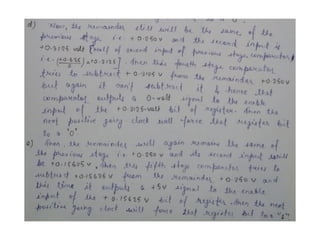 d) Now, the remainder still will be the same of the
previous stage i.e +0.250 V and the second input is
+0.3125 volt [half of second input of previous stage comparator
i.e. = +0.3125]. Then this fourth stage comparator
tries to subtract +0.3125 V from the remainder +0.250 V
but again it can't subtract it & hence that
comparator outputs a 0-volt signal to the enable
input of the +0.3125 volt bit of register. then the
next positive going clock will force that register bit
to a '0'
e) Then, the remainder will again remains the same of
the previous stage i.e +0.250 V and its second input will
be +0.15625 V, then this fifth stage comparator tries to
subtract +0.15625 V from the remainder +0.250 V and
this time it outputs a +5V signal to the enable
input of the +0.15625 V bit of register. then the next
positive going clock will force that register bit to a "1"